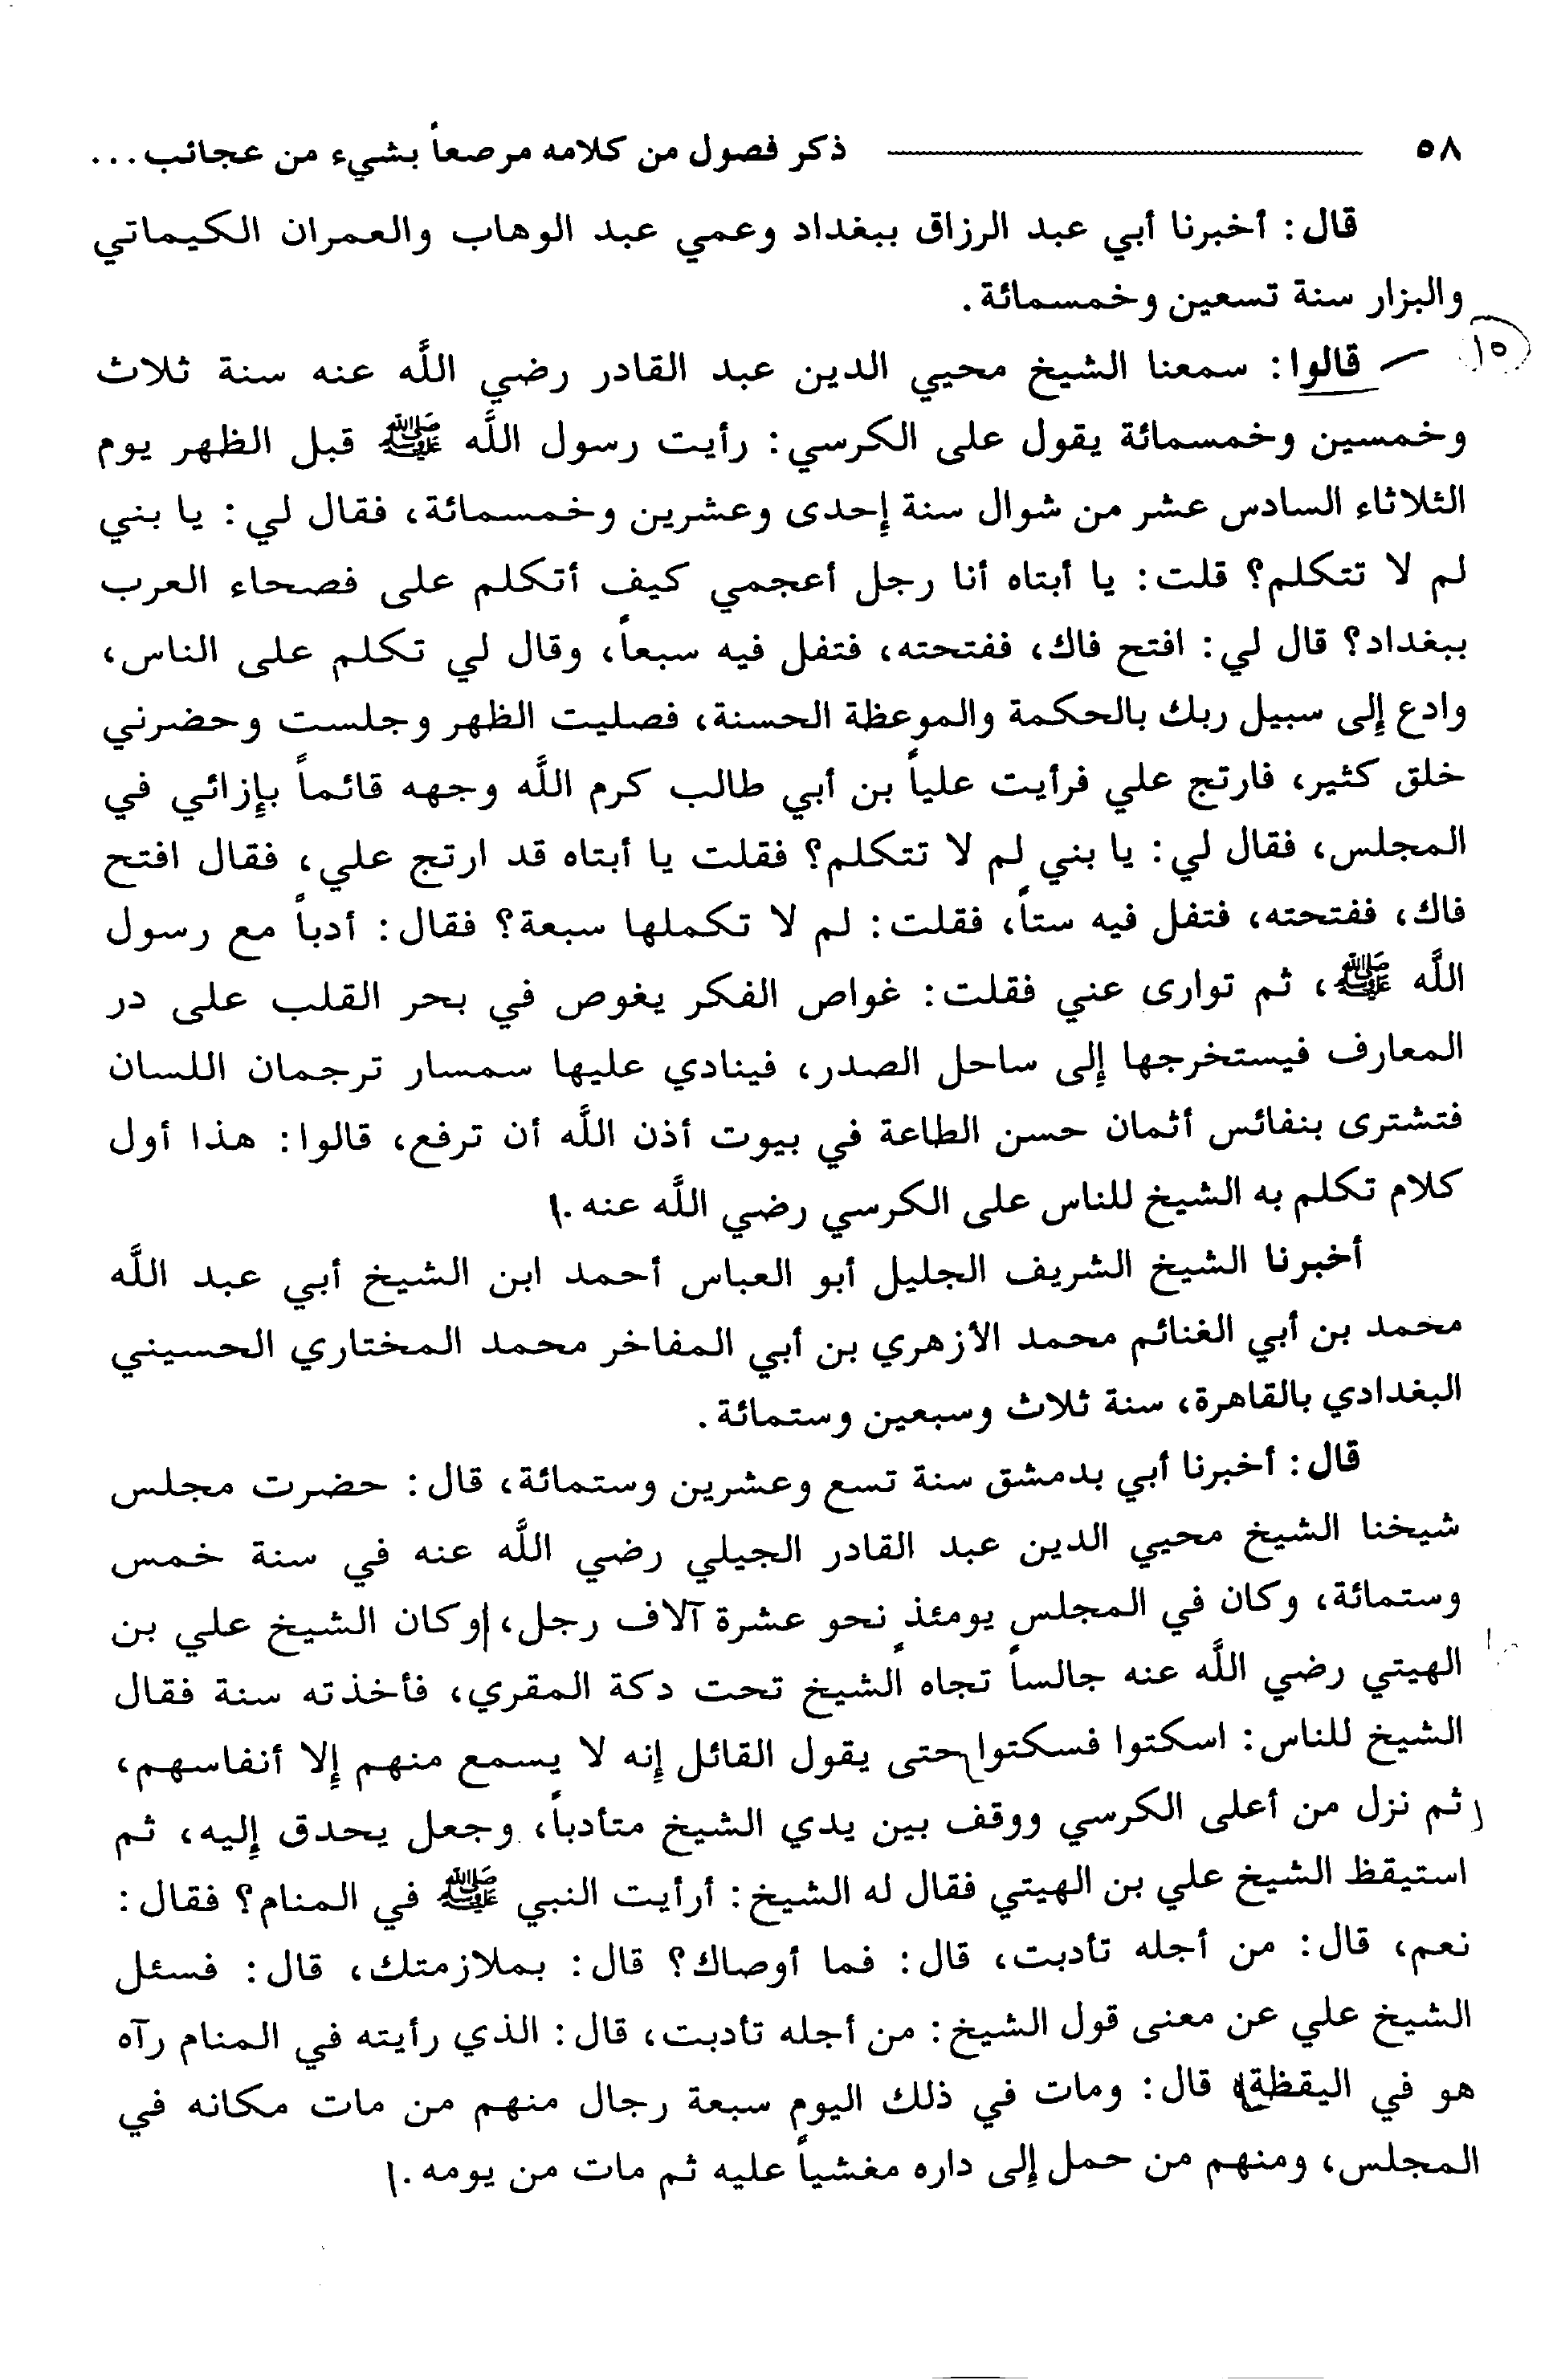 ٥٨ ذكر فصول من كلامه مرصعاً بشيء من عجائب...
قال: أخبرنا أبي عبد الرزاق ببغداد وعمي عبد الوهاب والعمران الكيماتي
والبزار سنة تسعين وخمسمائة.
١٥ قالوا: سمعنا الشيخ محيي الدين عبد القادر رضي اللَّه عنه سنة ثلاث
وخمسين وخمسمائة يقول على الكرسي: رأيت رسول اللَّه ﷺ قبل الظهر يوم
الثلاثاء السادس عشر من شوال سنة إحدى وعشرين وخمسمائة، فقال لي: يا بني
لم لا تتكلم؟ قلت: يا أبتاه أنا رجل أعجمي كيف أتكلم على فصحاء العرب
ببغداد؟ قال لي: افتح فاك، ففتحته، فتفل فيه سبعاً، وقال لي تكلم على الناس،
وادع إلى سبيل ربك بالحكمة والموعظة الحسنة، فصليت الظهر وجلست وحضرني
خلق كثير، فارتج علي فرأيت علياً بن أبي طالب كرم اللَّه وجهه قائماً بإزائي في
المجلس، فقال لي: يا بني لم لا تتكلم؟ فقلت يا أبتاه قد ارتج علي، فقال افتح
فاك، ففتحته، فتفل فيه ستاً، فقلت: لم لا تكملها سبعة؟ فقال: أدباً مع رسول
اللَّه ﷺ، ثم توارى عني فقلت: غواص الفكر يغوص في بحر القلب على در
المعارف فيستخرجها إلى ساحل الصدر، فينادي عليها سمسار ترجمان اللسان
فتشترى بنفائس أثمان حسن الطاعة في بيوت أذن اللَّه أن ترفع، قالوا: هذا أول
كلام تكلم به الشيخ للناس على الكرسي رضي اللَّه عنه.
أخبرنا الشيخ الشريف الجليل أبو العباس أحمد ابن الشيخ أبي عبد اللَّه
محمد بن أبي الغنائم محمد الأزهري بن أبي المفاخر محمد المختاري الحسيني
البغدادي بالقاهرة، سنة ثلاث وسبعين وستمائة.
قال: أخبرنا أبي بدمشق سنة تسع وعشرين وستمائة، قال: حضرت مجلس
شيخنا الشيخ محيي الدين عبد القادر الجيلي رضي اللَّه عنه في سنة خمس
وستمائة، وكان في المجلس يومئذٍ نحو عشرة آلاف رجل، وكان الشيخ علي بن
الهيتي رضي اللَّه عنه جالساً تجاه الشيخ تحت دكة المقري، فأخذته سنة فقال
الشيخ للناس: اسكتوا فسكتوا حتى يقول القائل إنه لا يسمع منهم إلا أنفاسهم،
ثم نزل من أعلى الكرسي ووقف بين يدي الشيخ متأدباً، وجعل يحدق إليه، ثم
استيقظ الشيخ علي بن الهيتي فقال له الشيخ: أرأيت النبي ﷺ في المنام؟ فقال:
نعم، قال: من أجله تأدبت، قال: فما أوصاك؟ قال: بملازمتك، قال: فسئل
الشيخ علي عن معنى قول الشيخ: من أجله تأدبت، قال: الذي رأيته في المنام رآه
هو في اليقظة، قال: ومات في ذلك اليوم سبعة رجال منهم من مات مكانه في
المجلس، ومنهم من حمل إلى داره مغشياً عليه ثم مات من يومه.